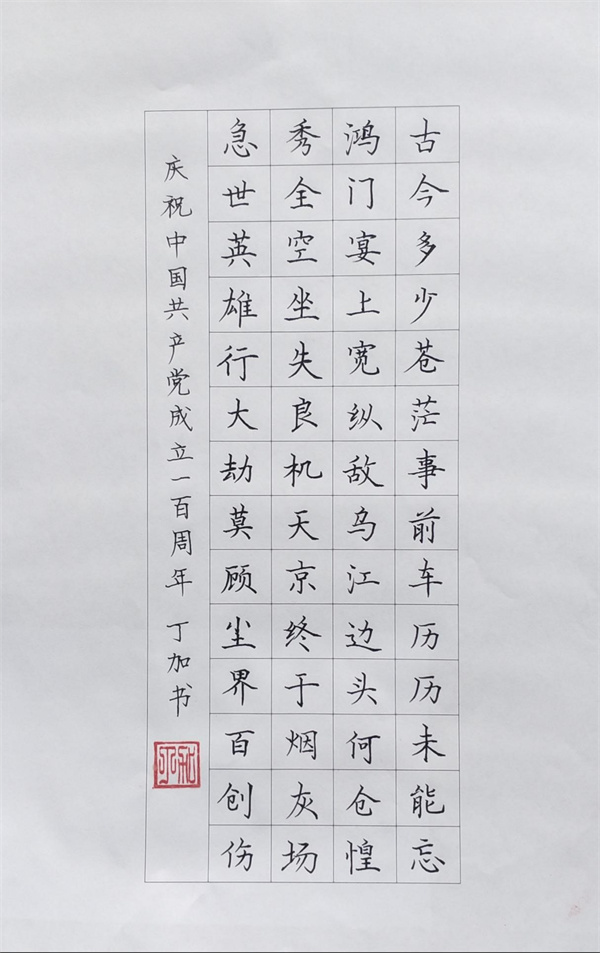 古今多少苍茫事前车历历未能忘
鸿门宴上宽纵敌乌江边头何仓惶
秀全空坐失良机天京终于烟灰场
急世英雄行大劫莫顾尘界百创伤
庆祝中国共产党成立一百周年 丁加书